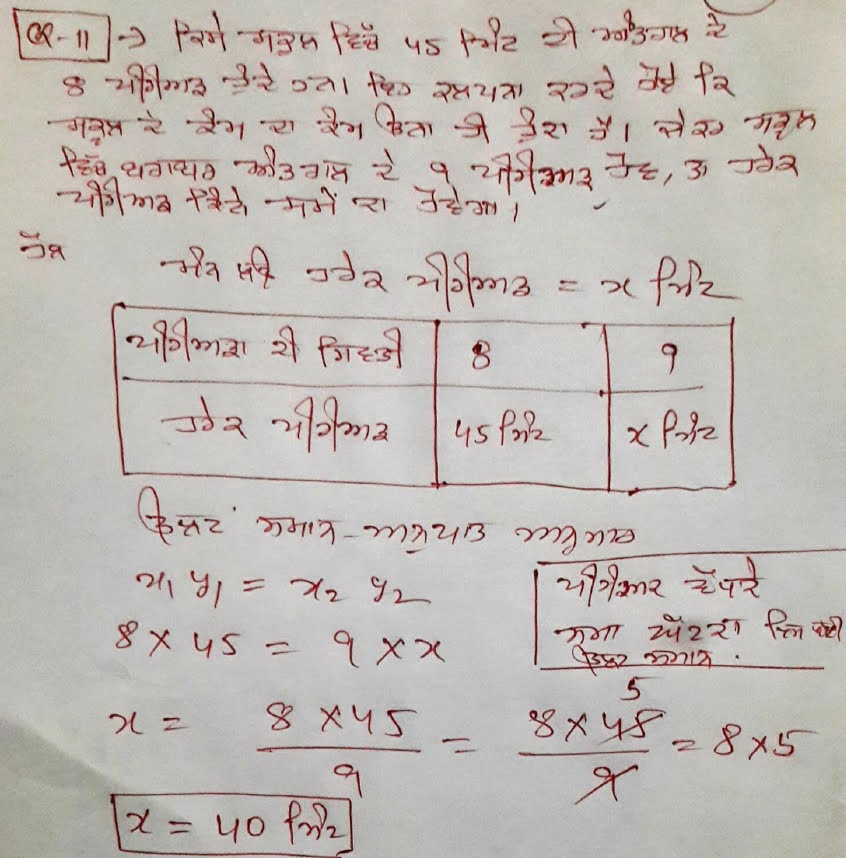 Q-11 → ਕਿਸੇ ਸਕੂਲ ਵਿੱਚ 45 ਮਿੰਟ ਦੀ ਅੰਤਰਾਲ ਦੇ
8 ਪੀਰੀਅਡ ਹੁੰਦੇ ਹਨ। ਇਹ ਕਲਪਨਾ ਕਰਦੇ ਹੋਏ ਕਿ
ਸਕੂਲ ਦੇ ਕੰਮ ਦਾ ਸਮਾਂ ਇੰਨਾ ਹੀ ਰਹਿੰਦਾ ਹੈ। ਜੇਕਰ ਸਕੂਲ
ਵਿੱਚ ਬਰਾਬਰ ਅੰਤਰਾਲ ਦੇ 9 ਪੀਰੀਅਡ ਹੋਣ, ਤਾਂ ਹਰੇਕ
ਪੀਰੀਅਡ ਕਿੰਨੇ ਸਮੇਂ ਦਾ ਹੋਵੇਗਾ।
ਹੱਲ
ਮੰਨ ਲਓ ਹਰੇਕ ਪੀਰੀਅਡ = x ਮਿੰਟ
ਪੀਰੀਅਡਾ ਦੀ ਗਿਣਤੀ 8 9
ਹਰੇਕ ਪੀਰੀਅਡ 45 ਮਿੰਟ x ਮਿੰਟ
ਉਲਟ ਸਮਾਨ-ਅਨੁਪਾਤ ਅਨੁਸਾਰ
x₁ y₁ = x₂ y₂
8 × 45 = 9 × x
ਪੀਰੀਅਡ ਵੱਧਦੇ
ਸਮਾਂ ਘੱਟਦਾ ਇਸ ਲਈ
ਉਲਟ ਸਮਾਨ.
x = 8 × 45 / 9 = 8 × 45 / 9 = 8 × 5
5
x = 40 ਮਿੰਟ